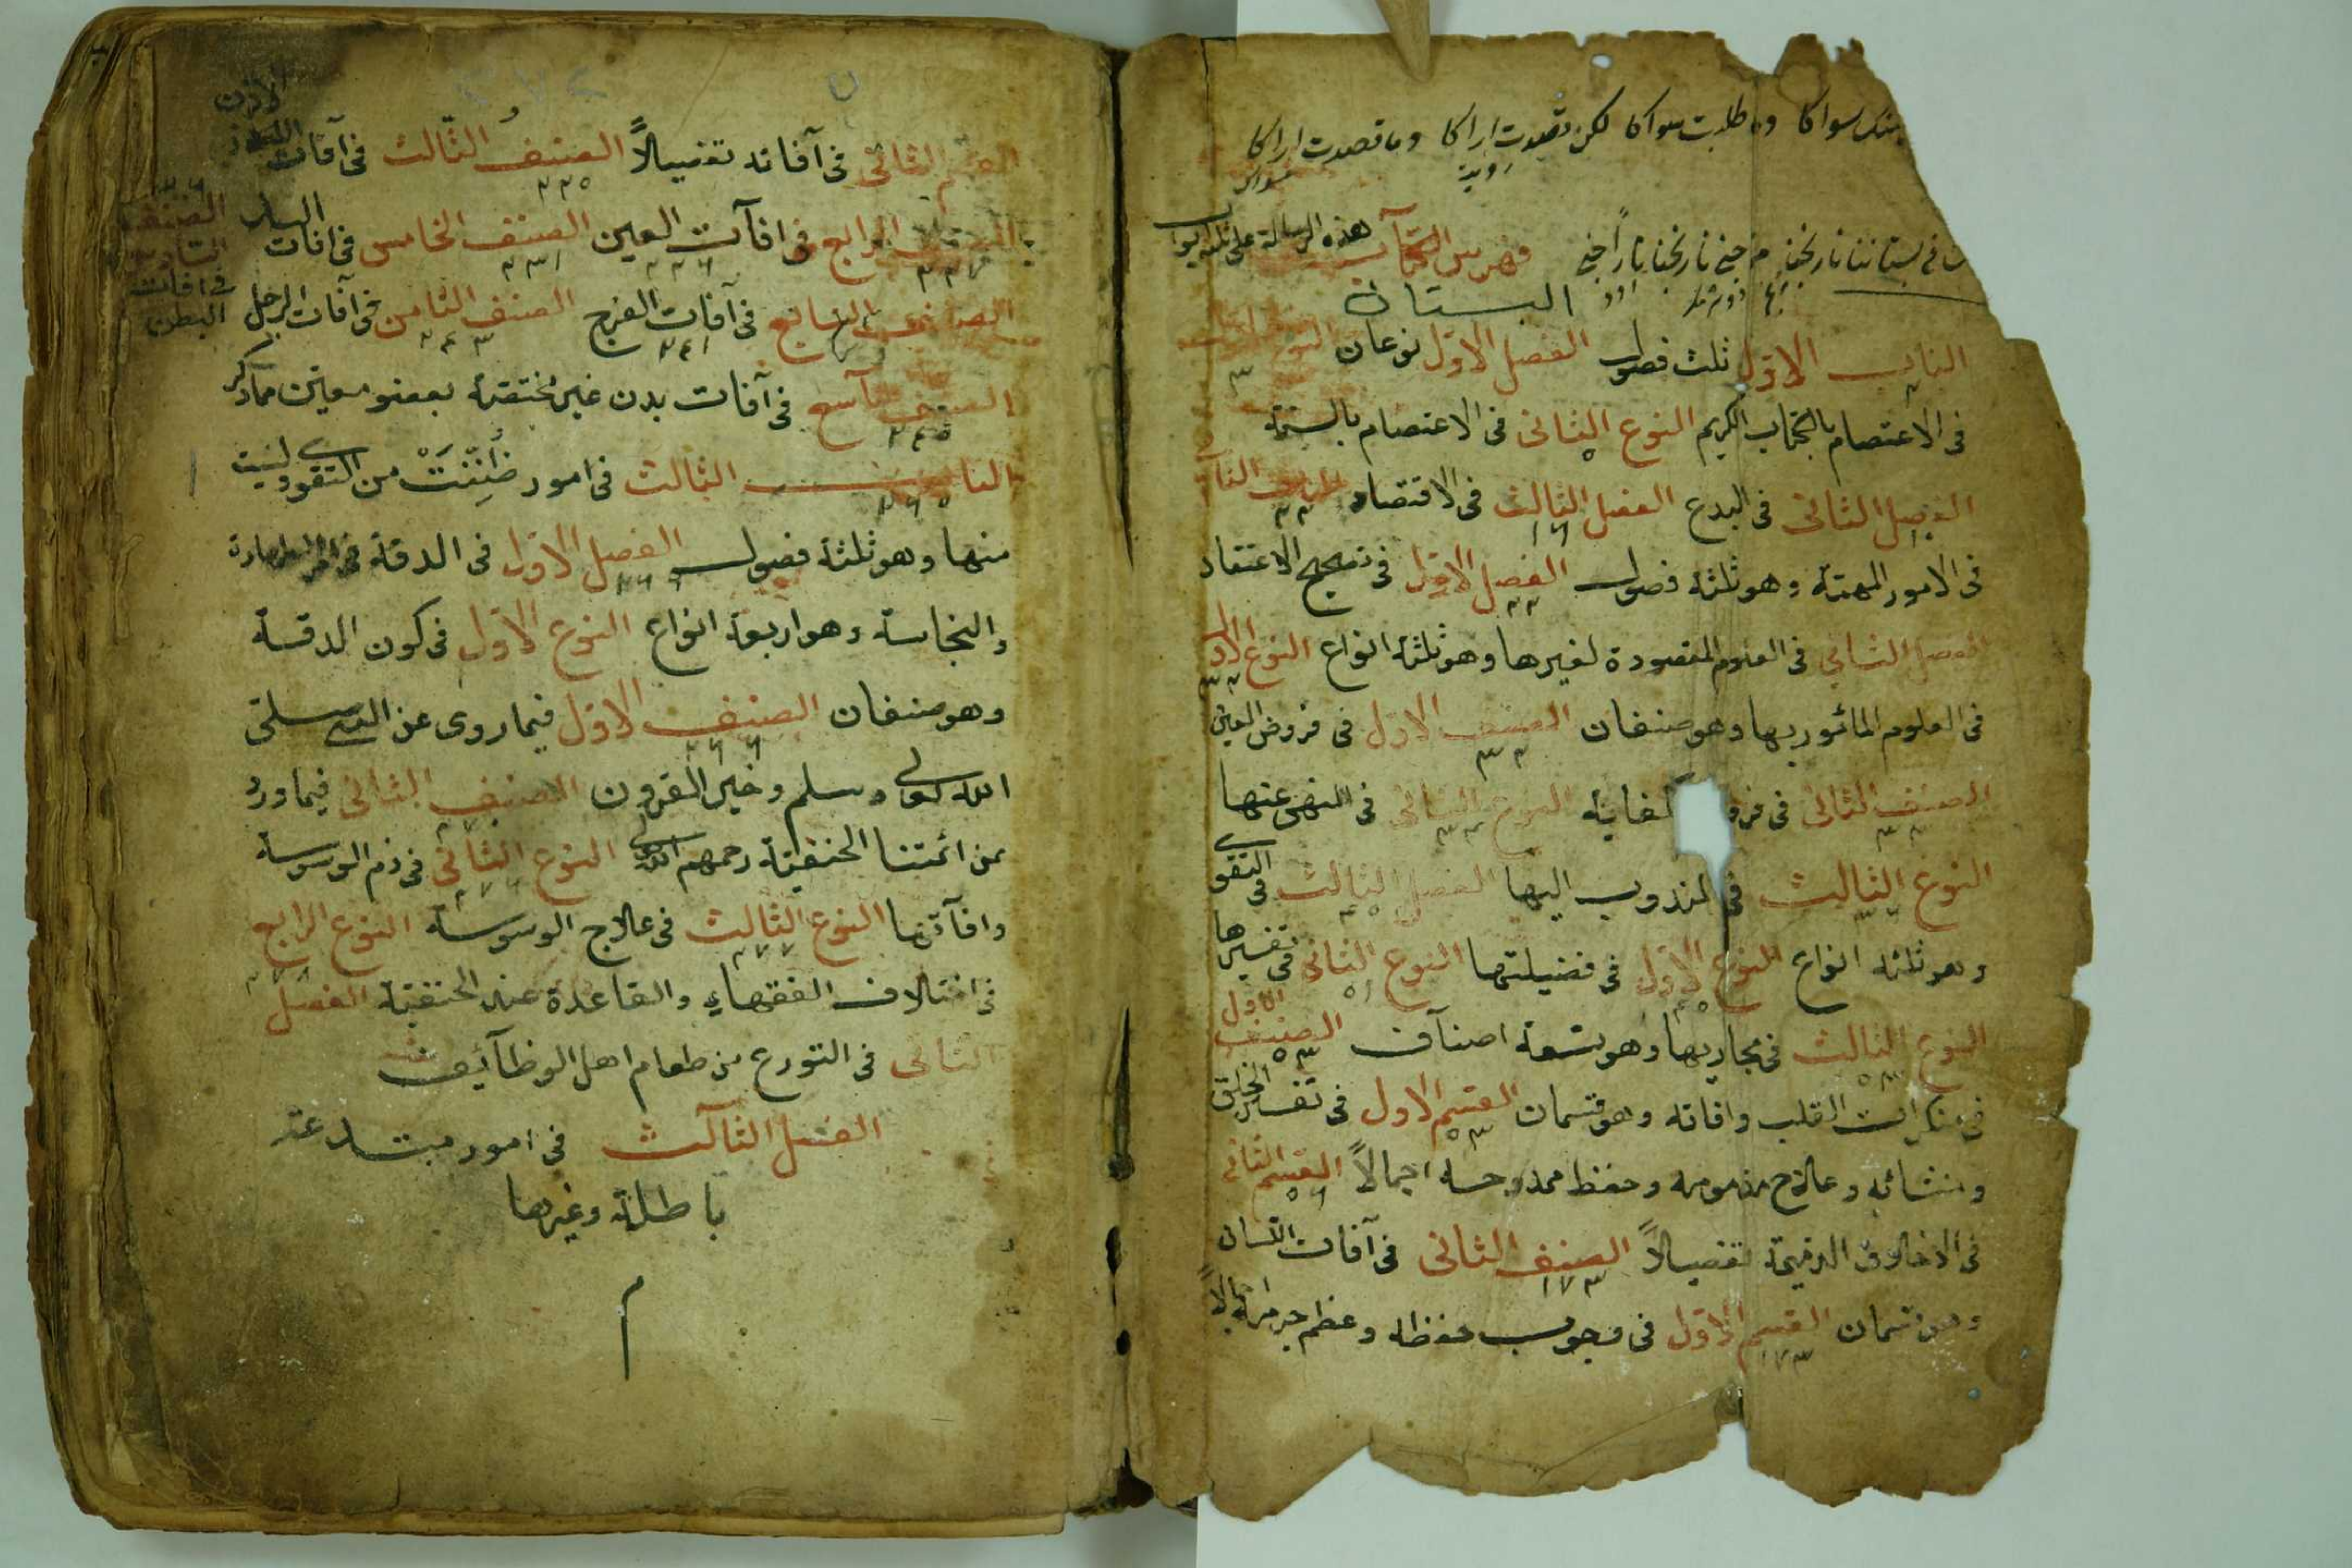 سواكا وما طلبت سواكا لكن قصدت اراكا وما قصدت اراكا
فهرس الكتاب هذه الرسالة على ثلثة ابواب
البستان
الباب الاول ثلث فصول الفصل الاول نوعان النوع الاول
٣
فى الاعتصام بالكتاب الكريم النوع الثانى فى الاعتصام بالسنة
الفصل الثانى فى البدع الفصل الثالث فى الاقتصاد الباب الثانى
فى الامور المهمة وهو ثلثة فصول الفصل الاول فى تصحيح الاعتقاد
الفصل الثانى فى العلوم المقصودة لغيرها وهو ثلثة انواع النوع الاول
فى العلوم المأمور بها وهو صنفان الصنف الاول فى فروض العين
الصنف الثانى فى فرو كفاية النوع الثانى فى المنهى عنها
النوع الثالث فى المندوب اليها الفصل الثالث فى التقوى
وهو ثلثة انواع النوع الاول فى فضيلتها النوع الثانى فى تفسيرها
النوع الثالث فى مجاريها وهو تسعة اصناف الصنف الاول
فى منكرات القلب وافاته وهو قسمان القسم الاول فى تفسير الخلق
ومنشائه وعلاج مذمومه وحفظ ممدوحه اجمالاً القسم الثانى
فى الاخلاق الذميمة تفصيلاً الصنف الثانى فى آفات اللسان
١٧٣
وهو قسمان القسم الاول فى وجوب حفظه وعظم جرمه اجمالاً
١٧٣
القسم الثانى فى آفاته تفصيلاً الصنف الثالث فى آفات الاذن
الصنف الرابع فى افآت العين الصنف الخامس فى افات اليد الصنف السادس فى افات البطن
الصنف السابع فى آفات الفرج الصنف الثامن فى آفات الرجل
الصنف التاسع فى آفات بدن غير مختصة بعضو معين مما ذكر
الباب الثالث فى امور ظُنّتْ من التقوى وليست
منها وهو ثلثة فصول الفصل الاول فى الدقة فى امر الطهارة
والنجاسة وهو اربعة انواع النوع الاول فى كون الدقة
وهو صنفان الصنف الاول فيما روى عن النبى صلى
الله تعالى وسلم وخير القرون الصنف الثانى فيما ورد
عن ائمتنا الحنفية رحمهم الله النوع الثانى فى ذم الوسوسة
وافآتها النوع الثالث فى علاج الوسوسة النوع الرابع
فى اختلاف الفقهاء والقاعدة عند الحنفية الفصل
الثانى فى التورع من طعام اهل الوظآئف
الفصل الثآلث فى امور مبتدعة
باطلة وغيرها
م